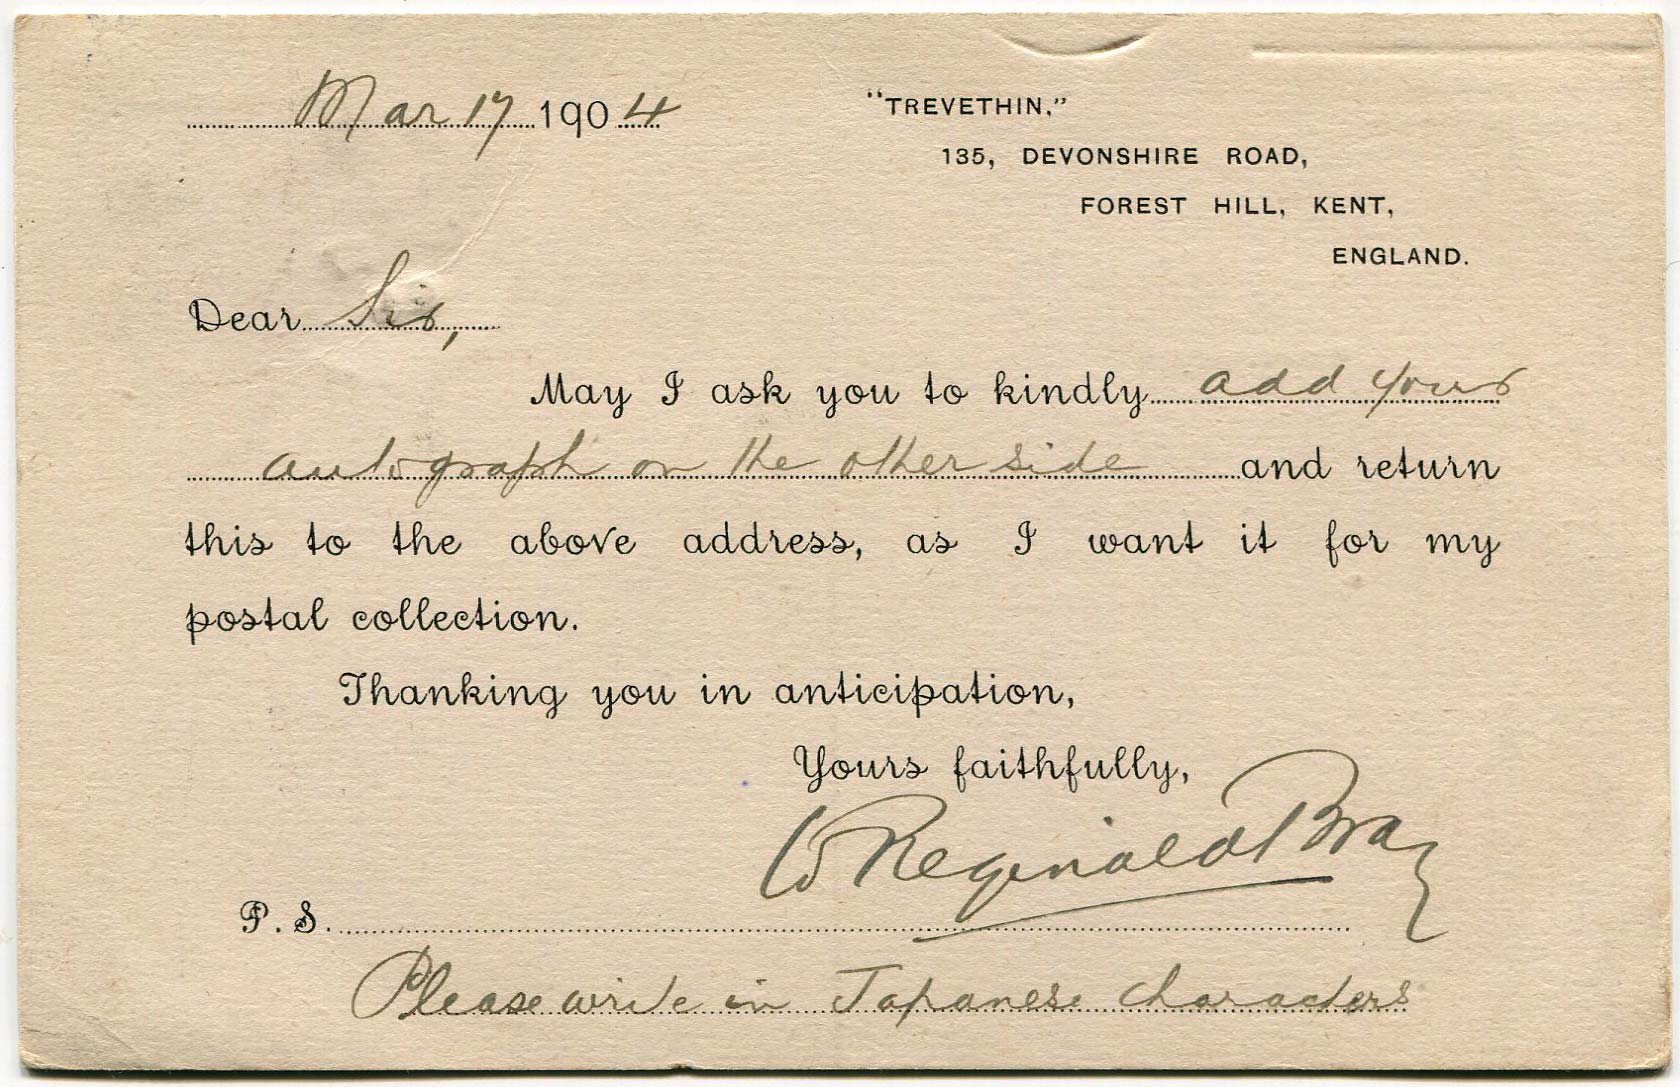 Mar 17 1904
"TREVETHIN,"
135, DEVONSHIRE ROAD,
FOREST HILL, KENT,
ENGLAND.
Dear Sir,
May I ask you to kindly add your
autograph on the other side and return
this to the above address, as I want it for my
postal collection.
Thanking you in anticipation,
Yours faithfully,
W Reginald Bray
P.S.
Please write in Japanese characters